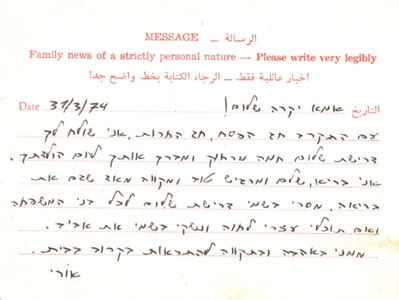 MESSAGE — الرسالة
Family news of a strictly personal nature — Please write very legibly
اخبار عائلية فقط — الرجاء الكتابة بخط واضح جداً
Date 31/3/74 אמא יקרה שלום! التاريخ
עם התקרב חג הפסח, חג החרות, אני שולח לך
דרישת שלום חמה מרחוק ומברך אותך ליום הולדתך.
אני בריא, שלם ומרגיש טוב ומקווה מאד שגם את
בריאה. מסרי בשמי דרישת שלום לכל בני המשפחה
ואם תוכלי עזרי לחוה ונשקי בשמי את אביב.
ממני באהבה ובתקווה להתראות בקרוב בבית.
אורי